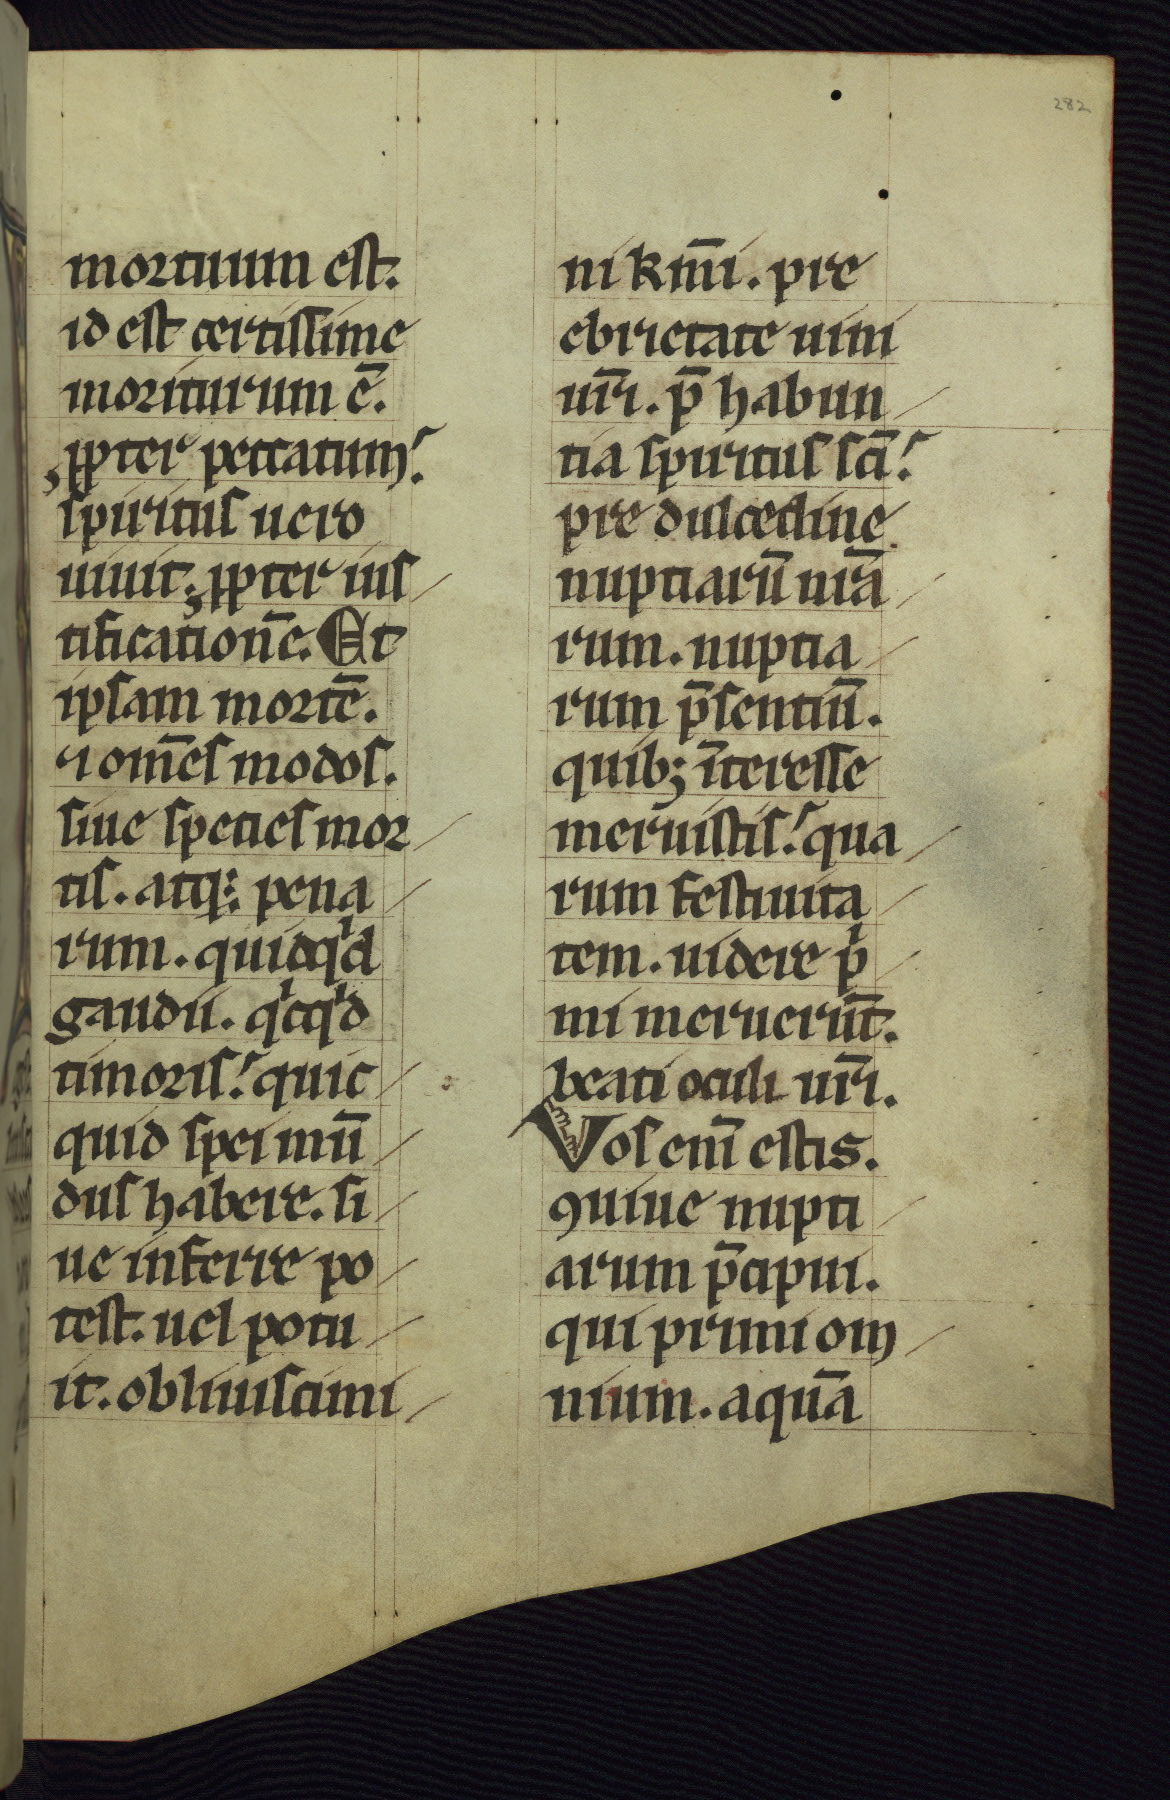 282
mortuum est.
id est certissime
moriturum ē.
ꝓpter peccatum.
spiritus uero
uiuit. ꝓpter ius
tificationē. Et
ipsam mortē.
⁊ om̄es modos.
siue species mor
tis. atq; pena
rum. quidqͥd
gaudii. qͥcqͥd
timoris. quic
quid spei mū
dus habere. si
ue inferre po
test. uel potu
it. obliuiscimi
ni km̄i. pre
ebrietate uini
ur̄i. p̄ habun
tia spiritus sc̄i.
pre dulcedine
nuptiarū nr̄a
rum. nuptia
rum p̄sentiū.
quib; īteresse
meruistis. qua
rum festiuita
tem. uidere pͥ
mi meruerūt.
beati oculi ur̄i.
Vos enī estis.
ꝯuiue nupti
arum p̄cipui.
qui primi om
nium. aquā